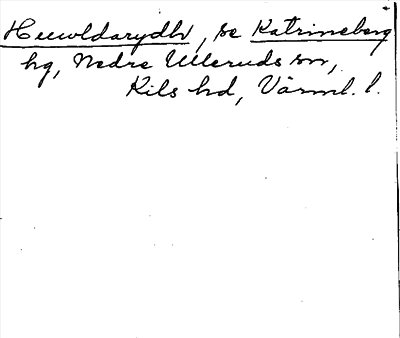 Heewldarydhr, se Katrineberg
hg, Nedre Ulleruds sn,
Kils hd, Värml. l.